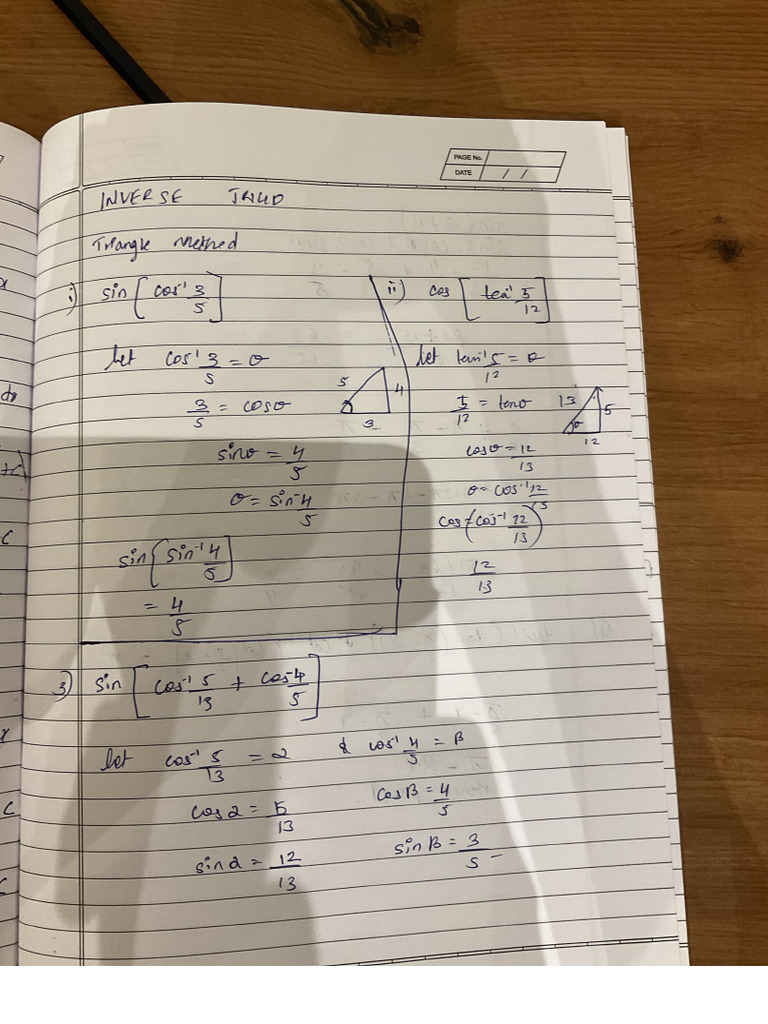 PAGE No.
DATE / /
INVERSE TRIG
Triangle Method
i) sin [cos⁻¹ 3/5]
let cos⁻¹ 3/5 = θ
3/5 = cosθ
5 4 3
sinθ = 4/5
θ = sin⁻¹ 4/5
sin [sin⁻¹ 4/5]
= 4/5
ii) cos [tan⁻¹ 5/12]
let tan⁻¹ 5/12 = θ
5/12 = tanθ
13 5 θ 12
cosθ = 12/13
θ = cos⁻¹ 12/13
cos (cos⁻¹ 12/13)
12/13
3) sin [cos⁻¹ 5/13 + cos⁻¹ 4/5]
let cos⁻¹ 5/13 = α & cos⁻¹ 4/5 = β
cosα = 5/13 cosβ = 4/5
sinα = 12/13 sinβ = 3/5